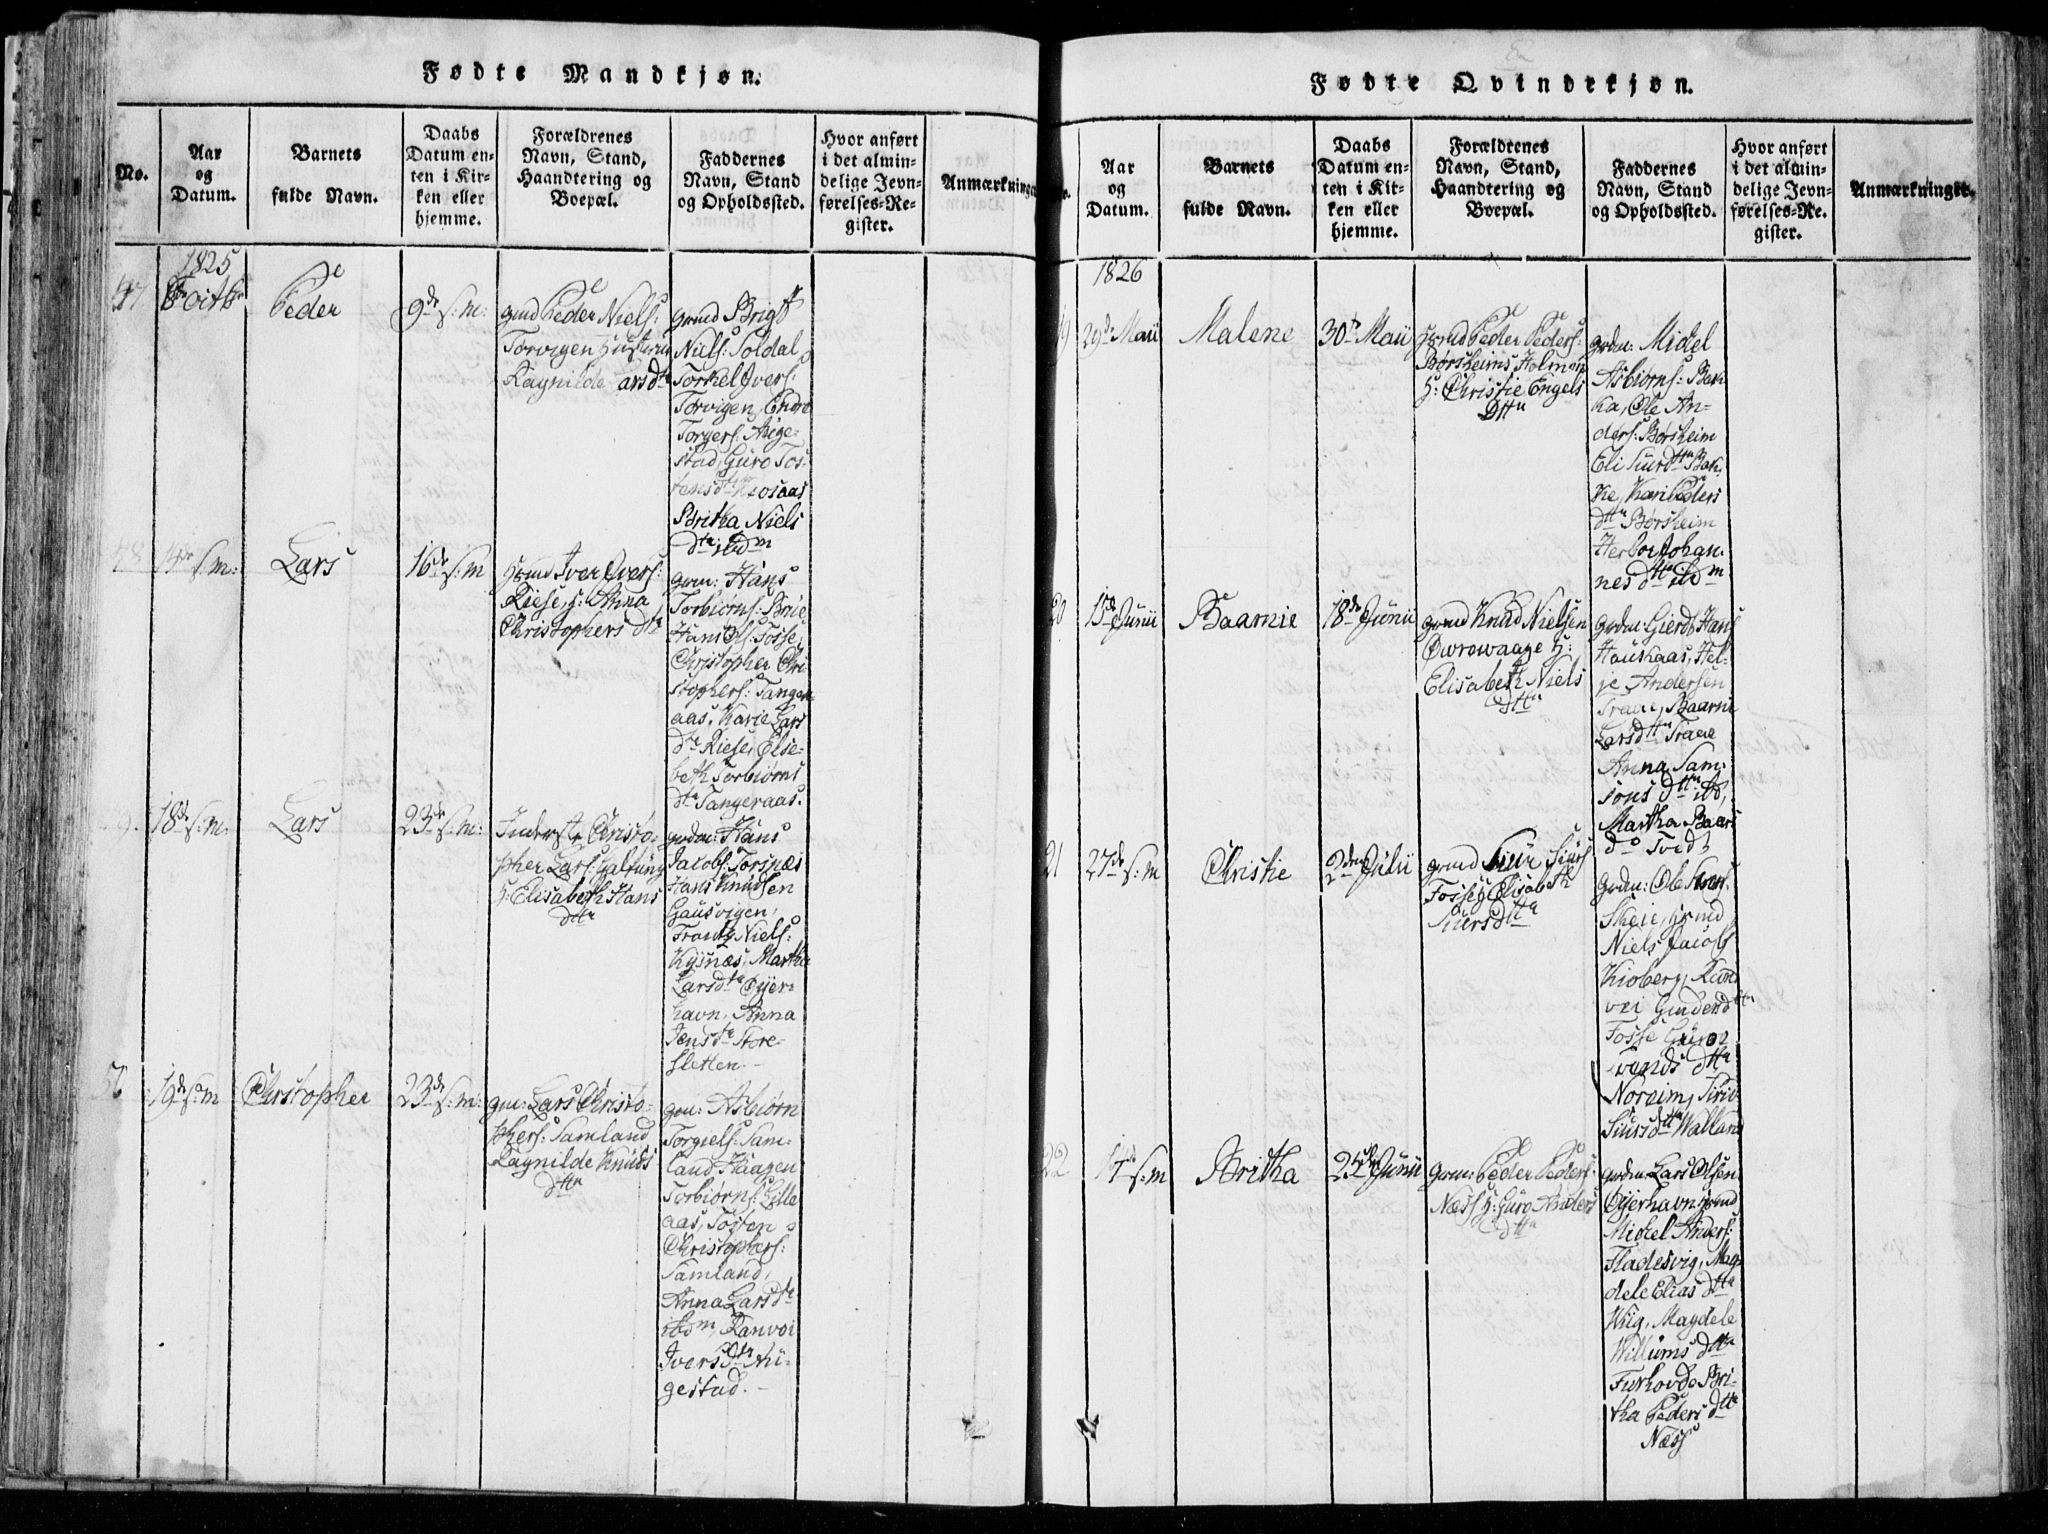 Fødte Mandkjøn.
No.
Aar
og
Datum.
Barnets
fulde Navn.
Daabs
Datum en-
ten i Kir-
ken eller
hjemme.
Forældrenes
Navn, Stand,
Haandtering og
Boepæl.
Faddernes
Navn, Stand
og Opholdssted.
Hvor anført
i det almin-
delige Jevn-
førelses-Re-
gister.
Anmærkninge
1825
47
8de Octbr
Peder
9de s: m:
gmd Peder Niels:
Torvigen Hustrue
Ragnilde Larsdtr
gmd Brigt
Niels: Soldal,
Torkel Ivers:
Torvigen, Endre
Torgers: Aige-
stad, Guro Tos-
tensdtr
Britha Niels
dtr ibdm
48
14de s: m:
Lars
16de s: m
Hsmd Iver Ivers:
Riese, H: Anna
Christophersdtr
grdm: Hans
Torbiørns: Brie
Hans Ols: Fosse,
Christopher Chri
stophers: Tange-
aas, Karie Lars
dtr Riese, Else-
beth Torbiørns
dtr Tangeraas.
9.
18de s: m:
Lars
23de s: m:
Inderst Christo-
pher Lars: Galtung
H: Elisabeth Hans
dttr
grdm: Hans
Jacobs: Torsnæs
Hans Knudsen
Gausvigen,
Frantz Niels:
Kysnæs, Martha
Larsdtr Øyer-
havn, Anna
Jensdtr Store-
sletten.
50
19de s: m
Chrstopher
23de s: m:
gm: Lars Christo-
phers: Samland
Ragnilde Knuds
dttr
gm: Asbiørn
Torgiels: Sam-
land, Haagen
Torbiørns: Lille
aas, Tosten
Christophers:
Samland,
Anna Larsdtr
ibdm, Ranvei
Iversdtr Ai-
gestad.
Fødte Qvindekjøn.
o.
Aar
og
Datum.
Barnets
fulde Navn.
Daabs
Datum en-
ten i Kir-
ken eller
hjemme.
Forældrenes
Navn, Stand,
Haandtering og
Boepæl.
Faddernes
Navn, Stand
og Opholdssted.
Hvor anført
i det almin-
delige Jevn-
førelses-Re-
gister.
Anmærkninger.
1826
19
29de Maii
Malene
30te Maii
Hsmd Peder Peders:
Børsheims Holmen
H: Christie Engels
Dttr
grdm: Midel
Asbiørns: Bak-
ka, Ole An-
ders: Børsheim
Eli Siurdttr Bak
ke, Kari Peders
dttr Børsheim
Herbor Johan-
nes dttr ibdm
20
15de Junii
Baarnie
18de Junii
gmd Knud Nielsen
Øwrewaage H:
Elisabeth Niels
dttr
grdm: Gierd Hans
Houkaas, Hel-
je Andersen
Traae, Baarni
Larsdttr Traae
Anna Sam-
sons dttr ibd,
Martha Baars
dr Tvedt
21
27de s: m
Christie
2den Julii
grmd Siur Siurs
Fosse H: Elisabeth
Siursdttr
grdm: Ole
Skeie, Hsmd
Niels Jacobs
Kioberg,
Fosse
dttr
Noreim, Siri
Siursdttr Walland
22
17de s: m
Britha
25de Junii
grm: Peder Peders:
Næss H: Guro Anders
dttr
grdm: Lars Olsen
Øyerhavn, Hsmd
Michel Anders:
Fladesvig, Mag
dele Elias dttr
Wiig, Magdele
Willums dttr
Furhovde Bri-
tha Peders dttr
Næss